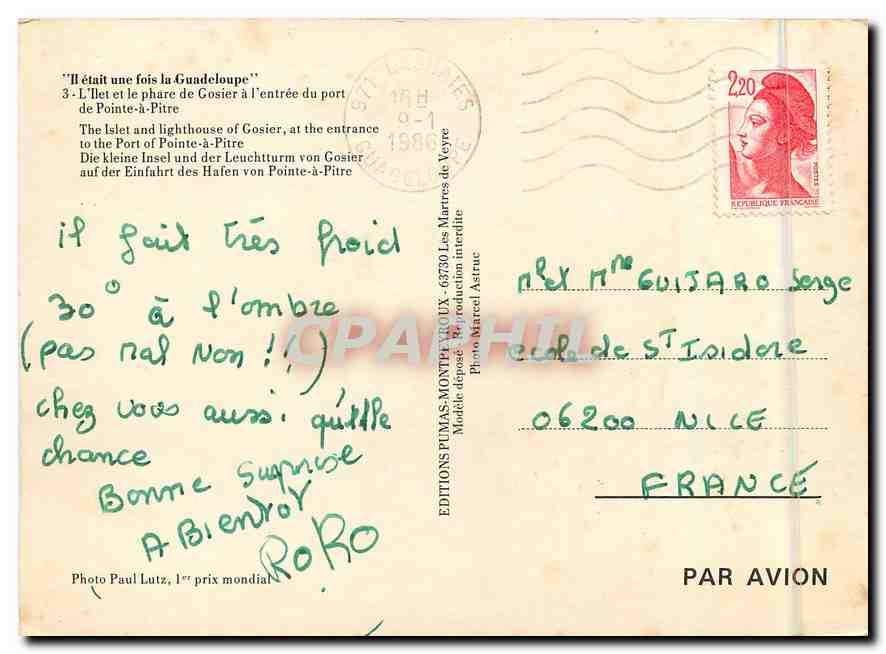 "Il était une fois la Guadeloupe"
3 - L'Ilet et le phare de Gosier à l'entrée du port
de Pointe-à-Pitre
The Islet and lighthouse of Gosier, at the entrance
to the Port of Pointe-à-Pitre
Die kleine Insel und der Leuchtturm von Gosier
auf der Einfahrt des Hafen von Pointe-à-Pitre
il fait très froid
30° à l'ombre
(pas mal non !!)
chez vous aussi. qu'elle
chance
Bonne surprise
A Bientot
RoRo
Photo Paul Lutz, 1er prix mondial
EDITIONS PUMAS-MONTPEYROUX - 63730 Les Martres de Veyre
Modèle déposé - Reproduction interdite
Photo Marcel Astruc
CPAPHIL
971
16H
1986
GUADELOUPE
2,20
POSTES
REPUBLIQUE FRANÇAISE
Mr et Mme GUIJARO Serge
ecole de ST Isidore
06200 NICE
FRANCE
PAR AVION